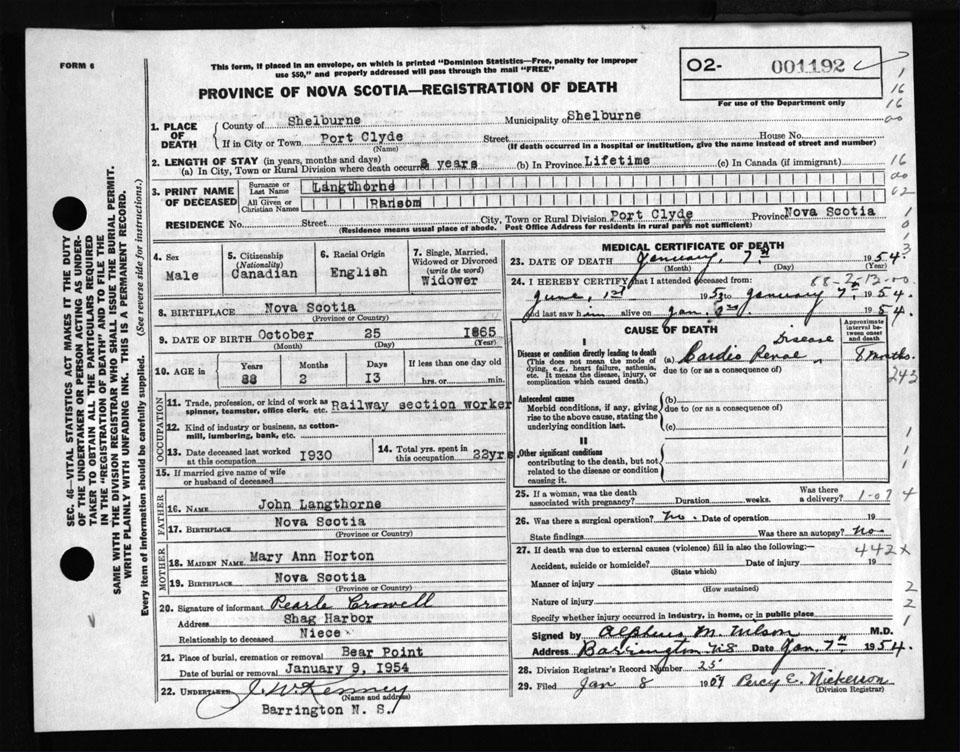 FORM 6
This form, if placed in an envelope, on which is printed "Dominion Statistics—Free, penalty for improper
use $50," and properly addressed will pass through the mail "FREE"
PROVINCE OF NOVA SCOTIA—REGISTRATION OF DEATH
02- 001192
For use of the Department only
1. PLACE OF DEATH
County of Shelburne Municipality of Shelburne
If in City or Town Port Clyde Street House No.
(Name) (If death occurred in a hospital or institution, give the name instead of street and number)
2. LENGTH OF STAY (in years, months and days)
(a) In City, Town or Rural Division where death occurred 8 years (b) In Province Lifetime (c) In Canada (if immigrant)
3. PRINT NAME OF DECEASED
Surname or Last Name Langthorne
All Given or Christian Names Ransom
RESIDENCE No. Street City, Town or Rural Division Port Clyde Province Nova Scotia
(Residence means usual place of abode. Post Office Address for residents in rural parts not sufficient)
4. Sex Male
5. Citizenship (Nationality) Canadian
6. Racial Origin English
7. Single, Married, Widowed or Divorced (write the word) Widower
8. BIRTHPLACE Nova Scotia
(Province or Country)
9. DATE OF BIRTH October 25 1865
(Month) (Day) (Year)
10. AGE in Years Months Days If less than one day old
88 2 13 hrs. or min.
OCCUPATION
11. Trade, profession, or kind of work as spinner, teamster, office clerk, etc. Railway section worker
12. Kind of industry or business, as cotton-mill, lumbering, bank, etc.
13. Date deceased last worked at this occupation 1930
14. Total yrs. spent in this occupation 22yrs
15. If married give name of wife or husband of deceased
FATHER
16. NAME John Langthorne
17. BIRTHPLACE Nova Scotia
(Province or Country)
MOTHER
18. MAIDEN NAME Mary Ann Horton
19. BIRTHPLACE Nova Scotia
(Province or Country)
20. Signature of informant Pearle Crowell
Address Shag Harbor
Relationship to deceased Niece
21. Place of burial, cremation or removal Bear Point
Date of burial or removal January 9, 1954
22. UNDERTAKER J. W. Kenney
(Name and address)
Barrington N. S.
MEDICAL CERTIFICATE OF DEATH
23. DATE OF DEATH January, 7th 1954.
(Month) (Day) (Year)
24. I HEREBY CERTIFY that I attended deceased from: 88-2-13-00
June, 1st 1953 to January 7th 1954.
and last saw him alive on Jan. 1954.
CAUSE OF DEATH
Approximate interval between onset and death
I
Disease or condition directly leading to death
(This does not mean the mode of dying, e.g., heart failure, asthenia, etc. It means the disease, injury, or complication which caused death.)
(a) Cardio Renae Disease 8 Months.
due to (or as a consequence of)
243
Antecedent causes
Morbid conditions, if any, giving rise to the above cause, stating the underlying condition last.
(b)
due to (or as a consequence of)
(c)
II
Other significant conditions
contributing to the death, but not related to the disease or condition causing it.
25. If a woman, was the death associated with pregnancy? Duration weeks. Was there a delivery? 1-07
26. Was there a surgical operation? No. Date of operation 19
State findings Was there an autopsy? No
27. If death was due to external causes (violence) fill in also the following: 442X
Accident, suicide or homicide? Date of injury 19
(State which)
Manner of injury
(How sustained)
Nature of injury
Specify whether injury occurred in industry, in home, or in public place
Signed by Alpheus M. Wilson M.D.
Address Barrington N.S Date Jan. 7th 1954
28. Division Registrar's Record Number 25
29. Filed Jan 8 19 Percy E. Nickerson
(Division Registrar)
SEC. 46—VITAL STATISTICS ACT MAKES IT THE DUTY
OF THE UNDERTAKER OR PERSON ACTING AS UNDER-
TAKER TO OBTAIN ALL THE PARTICULARS REQUIRED
IN THE "REGISTRATION OF DEATH" AND TO FILE THE
SAME WITH THE DIVISION REGISTRAR WHO SHALL ISSUE THE BURIAL PERMIT.
WRITE PLAINLY WITH UNFADING INK. THIS IS A PERMANENT RECORD.
Every item of information should be carefully supplied. (See reverse side for instructions.)
1
16
16
00
16
00
02
1
0
1
3
1
1
1
4
2
2
1